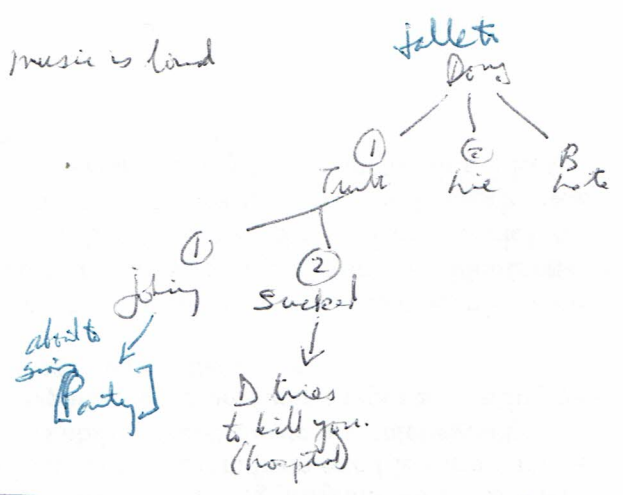 music is loud
talk to
Doug
① ② B
Truth Lie Note
① ②
joking Sucked
about to
sing
[Party]
D tries
to kill you.
(hospital)